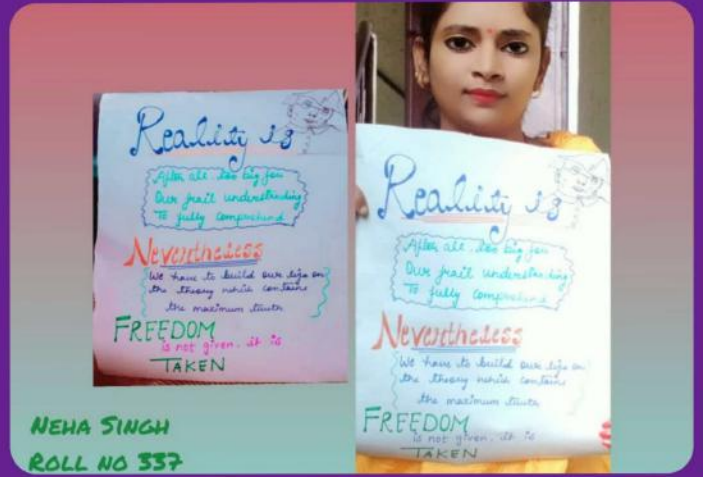 Reality is
After all, too big for
Our frail understanding
To fully comprehend
Nevertheless
We have to build our life on
the theory which contains
the maximum truth
FREEDOM
is not given, it is
TAKEN
Reality is
After all, too big for
Our frail understanding
To fully comprehend
Nevertheless
We have to build our life on
the theory which contains
the maximum truth
FREEDOM
is not given, it is
TAKEN
NEHA SINGH
ROLL NO 337